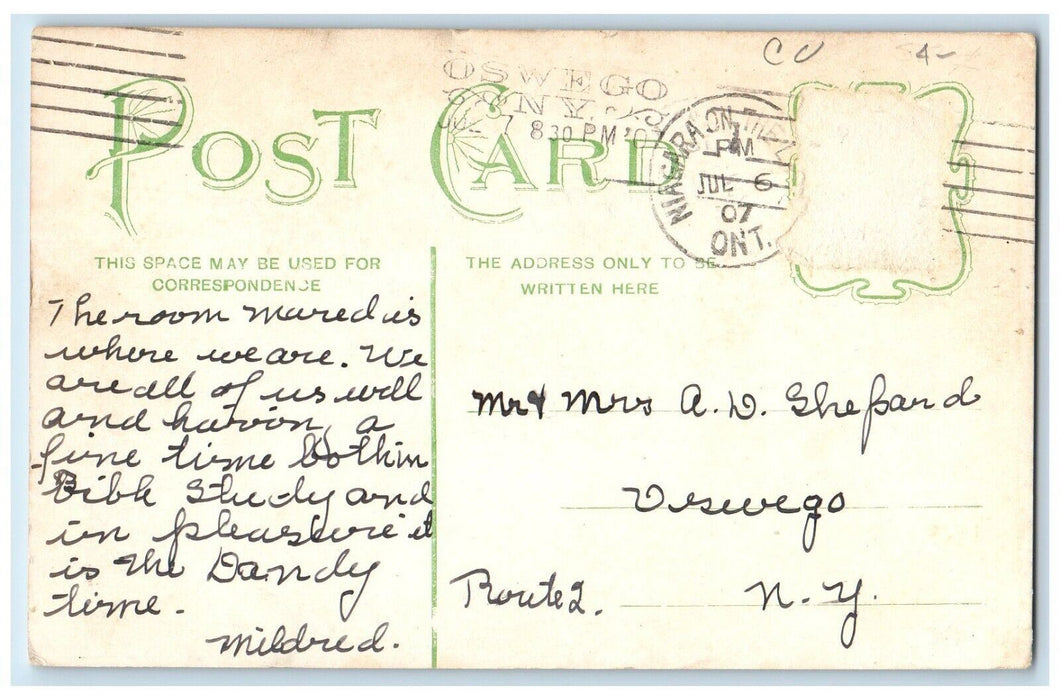 POST CARD
CU
4-
OSWEGO
N.Y.
JUL 7 8 30 PM '0
NIAGARA ON THE
PM
JUL 6
07
ONT.
THIS SPACE MAY BE USED FOR
CORRESPONDENCE
THE ADDRESS ONLY TO BE
WRITTEN HERE
The room mared is
where we are. We
are all of us well
and havin, a
fine time both in
Bible Study and
in pleasure it
is the Dandy
time.
Mildred.
Mr & Mrs A. D. Shepard
Oswego
Route 2. N. Y.